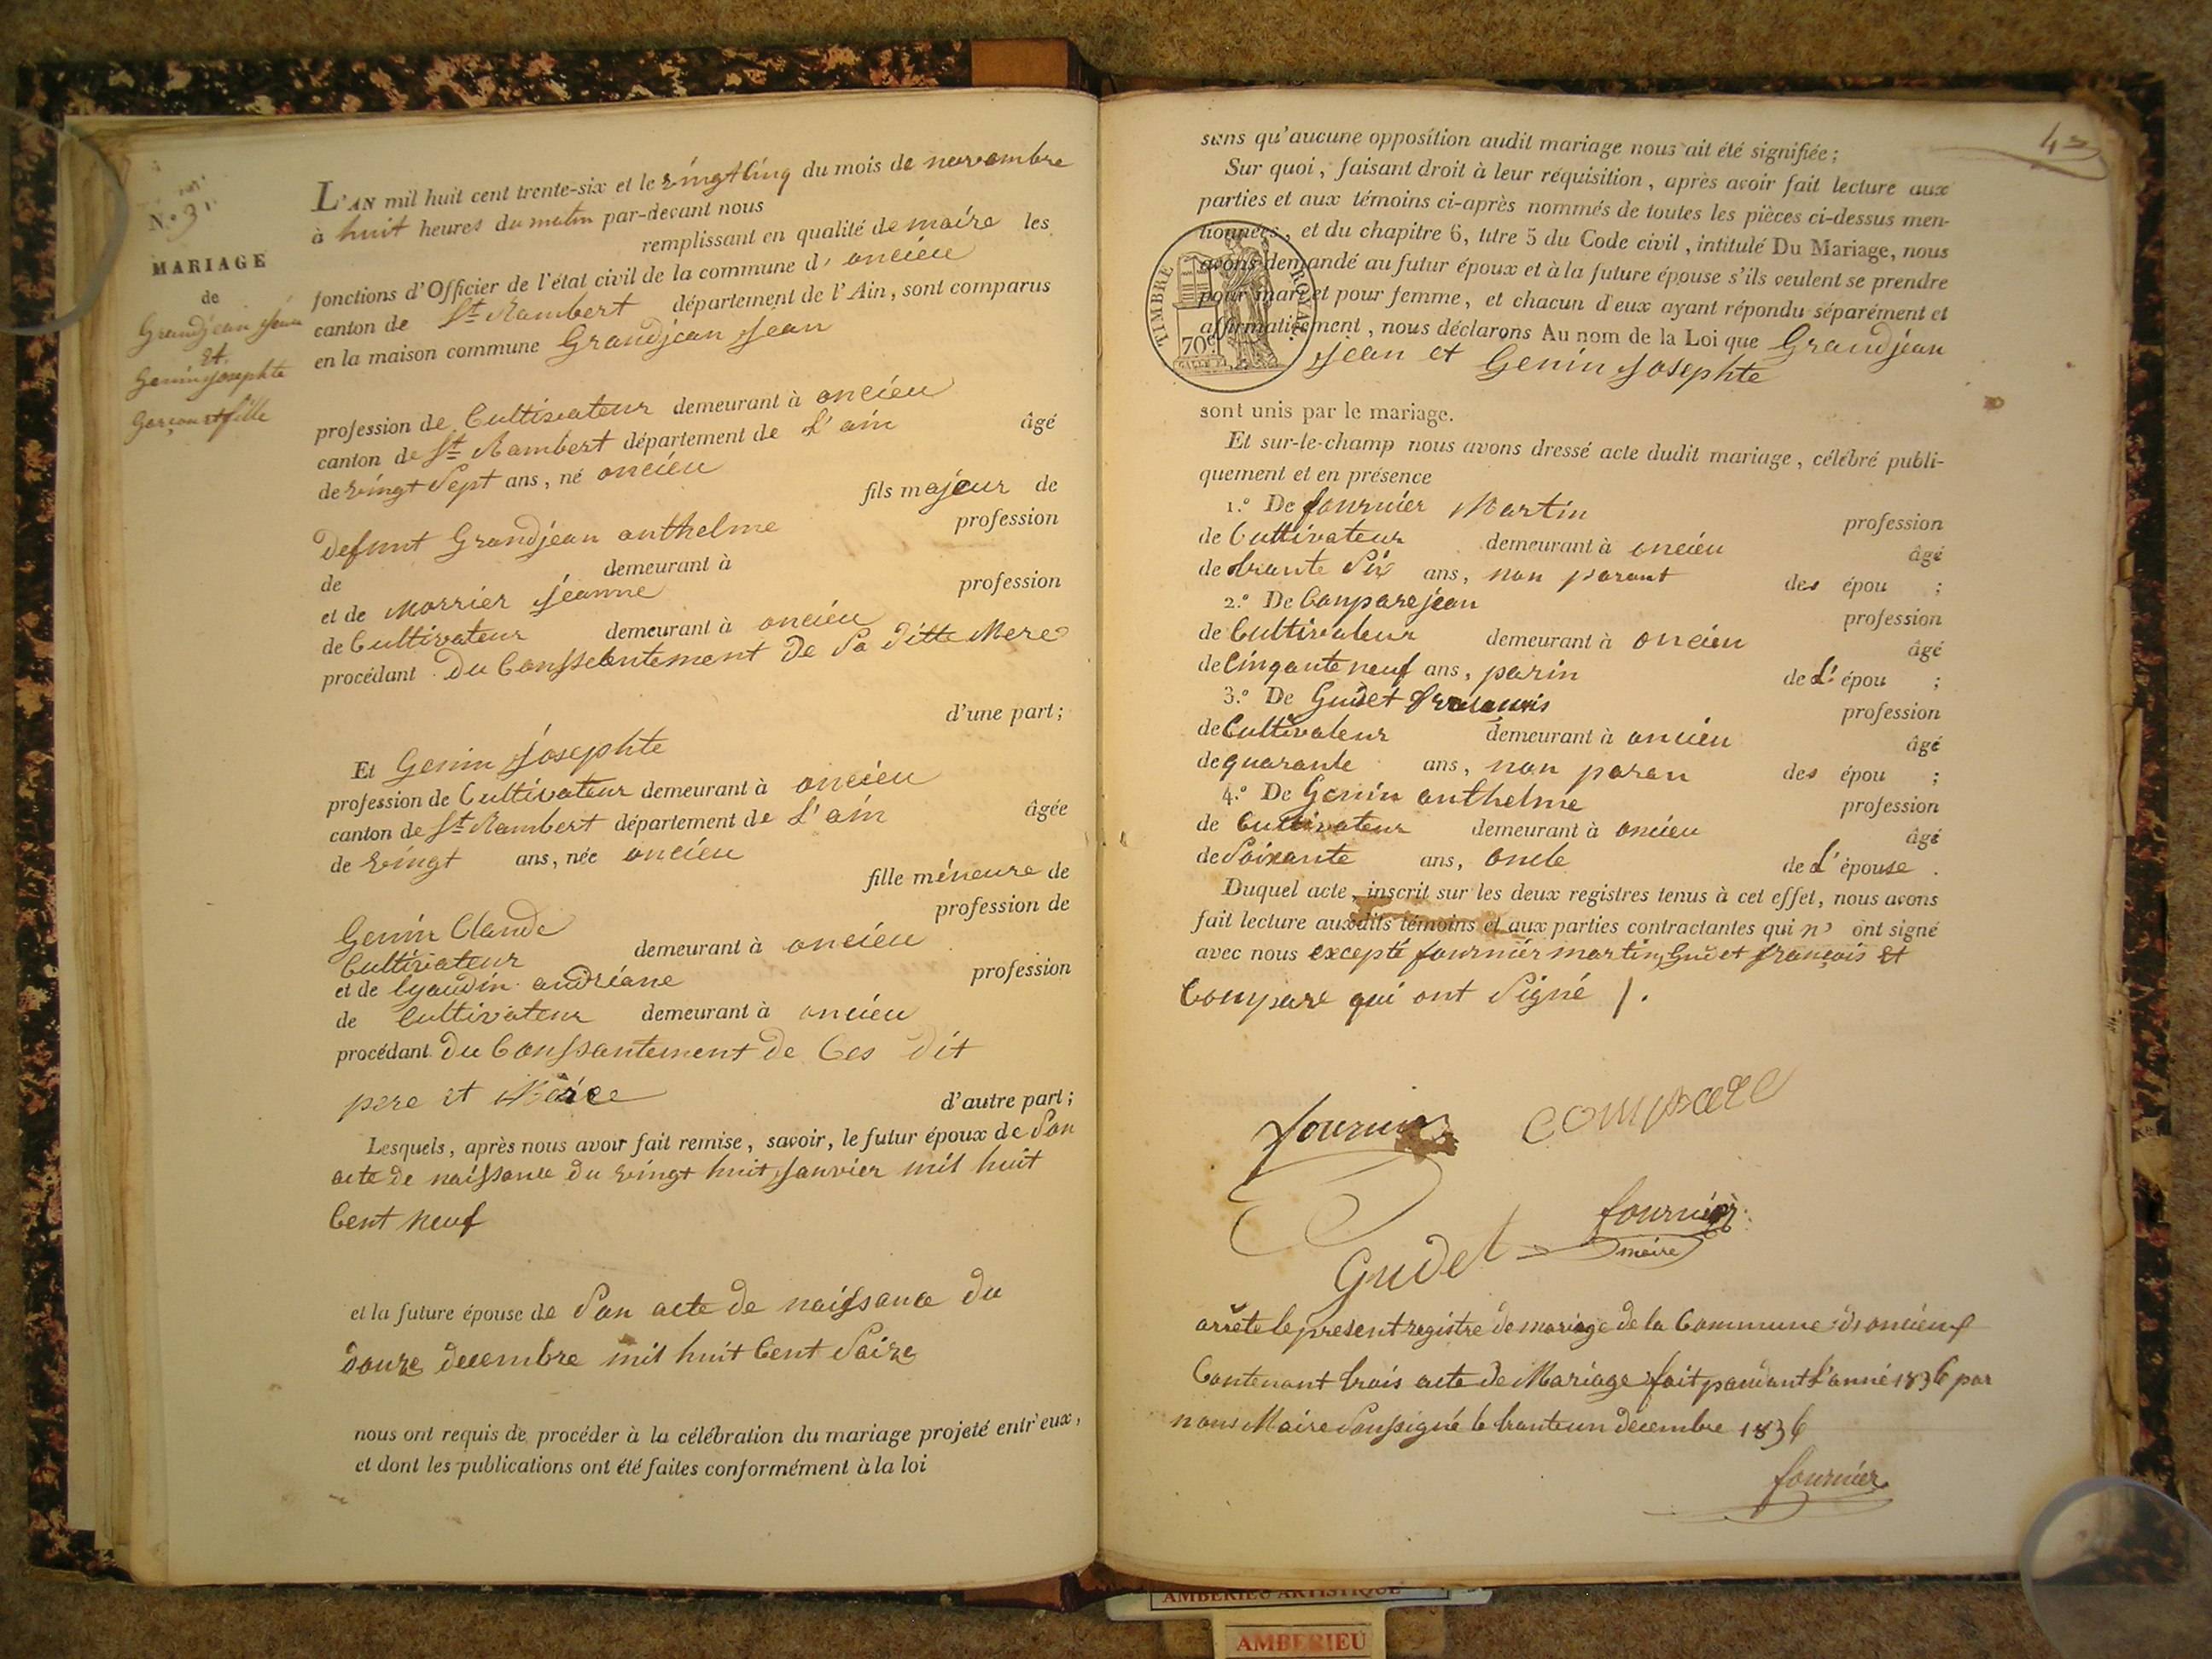 N.o 3
MARIAGE
de
Grandjean Jean
et
Genin Josephte
garçon et fille
L'AN mil huit cent trente-six et le vingt cinq du mois de novembre
à huit heures du matin par-devant nous
remplissant en qualité de maire les
fonctions d'Officier de l'état civil de la commune d' oncieu
canton de St Rambert département de l'Ain, sont comparus
en la maison commune Grandjean Jean
profession de Cultivateur demeurant à oncieu
canton de St Rambert département de L'ain âgé
de vingt Sept ans, né oncieu
fils majeur de
Defunt Grandjean anthelme profession
de demeurant à
et de Morrier Jeanne profession
de Cultivateur demeurant à oncieu
procédant Du Conssentement De Sa Ditte Mere
d'une part;
Et Genin Josephte
profession de Cultivateur demeurant à oncieu
canton de St Rambert département de L'ain âgée
de vingt ans, née oncieu
fille méneure de
Genin Claude profession de
Cultivateur demeurant à oncieu
et de Gyaudin andriane profession
de Cultivateur demeurant à oncieu
procédant Du Conssantement De Ces Dit
pere et Mere d'autre part;
Lesquels, après nous avoir fait remise, savoir, le futur époux de Son
acte de naissance du vingt huit Janvier mil huit
Cent neuf
et la future épouse de Son acte de naissance du
douze decembre mil huit Cent Saize
nous ont requis de procéder à la célébration du mariage projeté entr'eux,
et dont les publications ont été faites conformément à la loi
sans qu'aucune opposition audit mariage nous ait été signifiée;
Sur quoi, faisant droit à leur réquisition, après avoir fait lecture aux
parties et aux témoins ci-après nommés de toutes les pièces ci-dessus men-
tionnées, et du chapitre 6, titre 5 du Code civil, intitulé Du Mariage, nous
avons demandé au futur époux et à la future épouse s'ils veulent se prendre
pour mari et pour femme, et chacun d'eux ayant répondu séparément et
affirmativement, nous déclarons Au nom de la Loi que Grandjean
Jean et Genin Josephte
TIMBRE ROYAL
70c
sont unis par le mariage.
Et sur-le-champ nous avons dressé acte dudit mariage, célébré publi-
quement et en présence
1.o De fournier Martin profession
de Cultivateur demeurant à oncieu âgé
de trante Six ans, non parant des épou ;
2.o De Compare jean profession
de Cultivateur demeurant à oncieu âgé
de Cinqante neuf ans, parin de L' épou ;
3.o De Gudet francois profession
de Cultivateur demeurant à oncieu âgé
de quarante ans, non paran des épou ;
4.o De Genin anthelme profession
de Cultivateur demeurant à oncieu âgé
de Soixante ans, oncle de L'épouse .
Duquel acte, inscrit sur les deux registres tenus à cet effet, nous avons
fait lecture auxdits témoins et aux parties contractantes qui n' ont signé
avec nous excepté fournier martin, Gudet françois et
Compare qui ont Signé /.
fournier
compare
fournier
maire
Gudet
arrête le present registre de mariage de la Commune d'oncieux
Contenant trois acte de Mariage fait pandant L'anné 1836 par
nous Maire Soussigné le tranteun decembre 1836
fournier
AMBERIEU ARTISTIQUE
AMBERIEU